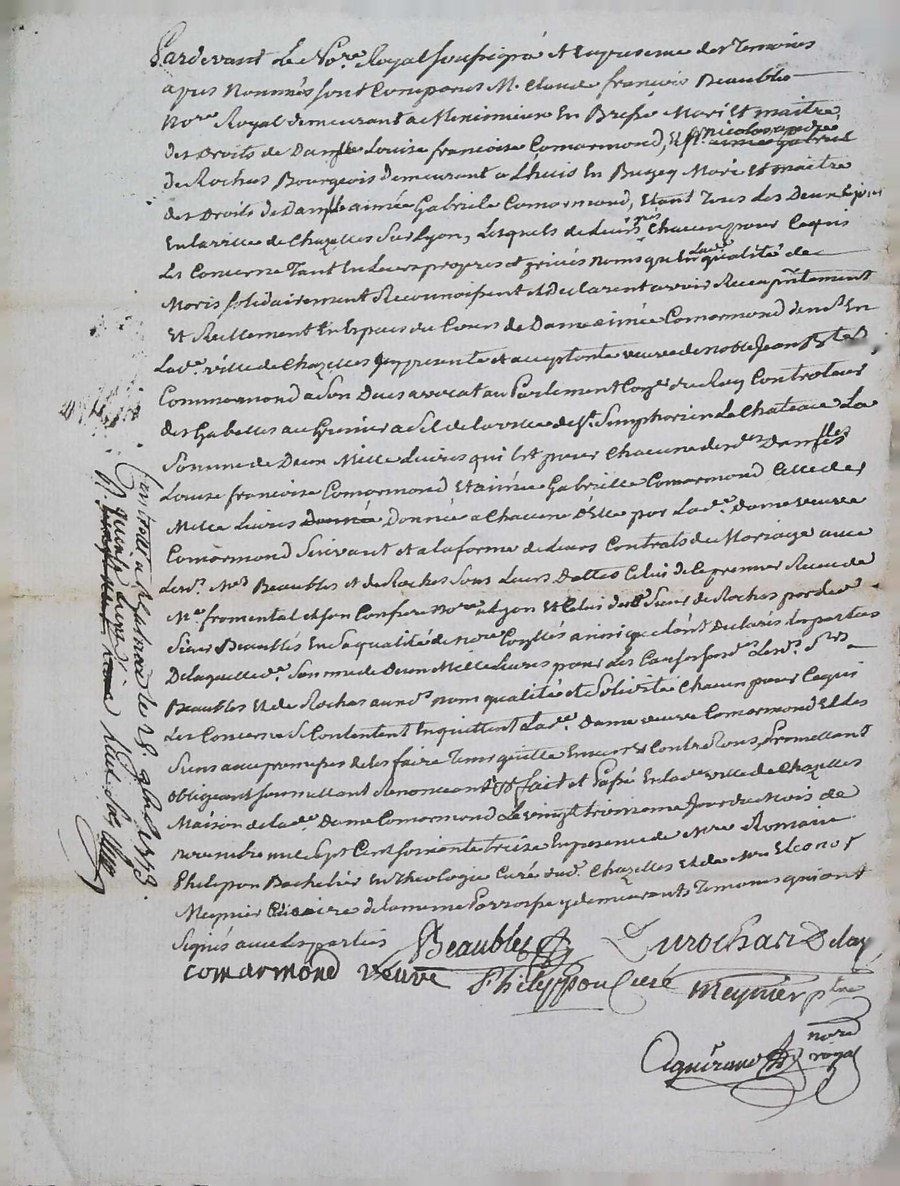 Pardevant Le No.re Royal soussigné et en presence des Temoins
apres Nommés sont Comparus M. Claude françois Beaublés
No.re Royal demeurant a Meximieux En Bresse Mari Et maitre
des Droits de Dam.lle Louise françoise Comarmond, Et nicolas
de Rochas Bourgeois demeurant a Lhuis En Bugey Mari Et maitre
des Droits de Dam.lle aimée Gabriele Comarmond, Etant Tous Les Deux
En la ville de Chazelles Sur Lyon, Lesquels de Leurs grés Chacun pour Ce qui
Les Concerne Tant En Leurs propres et privés noms qu'En La d.e qualité de
Maris solidairement Reconnoissent et Declarent avoir Recu
Et Reellement En Espaces du Cours de Dame aimée Comarmond dem.t En
La d.e ville de Chazelles Icy presente et acceptante veuve de noble Jean
Commarmond a Son Deces avocat au Parlement Con.er du Roy Controleur
des Gabelles au Grenier a Sel de la ville de S.t Simphorien Le Chateau La
Somme de Deux Mille Livres qui Est pour Chacune des d.es Dam.lles
Louise françoise Comarmond Et aimée Gabrielle Comarmond Celle de
Mille Livres Donnée a Chacune d'Elle par La d.e dame veuve
Comarmond Suivant et a la forme de Leurs Contrats de Mariage avec
Les d. M.es Beaubles et de Rochas Sous Leurs Dattes Celui de Ce premier Recu de
M.e fromental et son Confrere No.re a Lyon Et Celui du d. Sieur de Rochas par
Sieur Beaublés En Sa qualité de no.re ainsi que dont Declarés Les parties
De laquelle d.e Somme de Deux Mille Livres pour Les Causes Les d. S.rs
Beaubles Et de Rochas aux d. noms qualité et Solidité Chacun pour Ce qui
Les Concerne Se Contentent En quittent La d.e Dame veuve Comarmond Et Les
Siens avec promesses de Les faire Tenir quitte Envers Et Contre Tous, Promettant
obligeant soumettant Renonceant fait et Passé En la d.e ville de Chazelles
Maison de la d.e Dame Comarmond Le vingt troisieme Jour du Mois de
novembre mil Sept Cent soixante treize En presence de M.re Romain
Philippon Bachelier En Theologie Curé du d. Chazelles Et de M.re
Meynier Vicaire de la meme Parroisse y demeurants Temoins qui ont
Signés avec Les parties
Beaubles
Durochas Delay
comarmond veuve
Philippon Curé
Meynier p.tre
no.re
royal
Controllé a le 28 9bre 1773.
R. quinze Livres